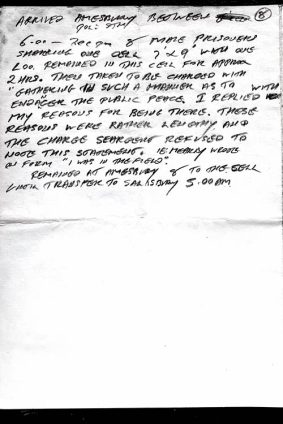 ARRIVED AMESBURY BETWEEN
POLICE STN
8
6.00 - 7.00 pm 8 MALE PRISONERS
SHARING ONE CELL 7'x9' WITH ONE
LOO. REMAINED IN THIS CELL FOR APPROX
2 HRS. THEN TAKEN TO BE CHARGED WITH
"GATHERING IN SUCH A MANNER AS TO
ENDANGER THE PUBLIC PEACE. I REPLIED WITH
MY REASONS FOR BEING THERE. THESE
REASONS WERE RATHER LENGTHY AND
THE CHARGE SEARGENT REFUSED TO
NOTE THIS STATEMENT. HE MERELY WROTE
ON FORM "I WAS IN THE FIELD".
REMAINED AT AMESBURY 8 TO THE CELL
UNTIL TRANSFER TO SALISBURY 5.00AM